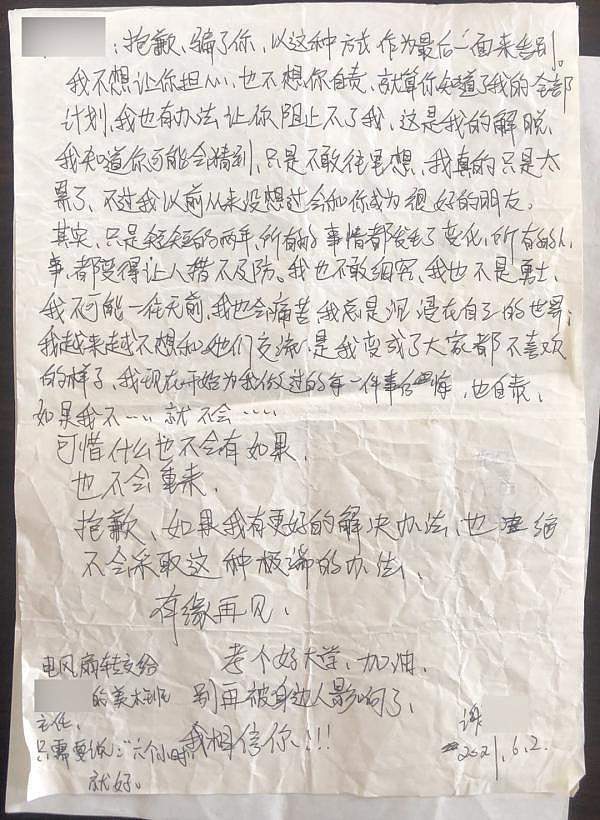 ：抱歉、骗了你，以这种方式作为最后一面来告别。
我不想让你担心，也不想你自责、就算你知道了我的全部
计划，我也有办法让你阻止不了我、这是我的解脱、
我知道你可能会猜到、只是不敢往里想、我真的只是太
累了、不过我以前从来没想过会和你成为很好的朋友。
其实、只是短短的两年，所有的事情都发生了变化，所有的人
事、都变得让人措不及防。我也不敢细究、我也不是勇士、
我不可能一往无前，我也会痛苦，我总是沉浸在自己的世界；
我越来越不想和她们交流、是我变成了大家都不喜欢
的样子、我现在开始为我做过的每一件事后悔，也自责、
如果我不……就不会……
可惜什么也不会有如果、
也不会重来、
抱歉、如果我有更好的解决办法、也决绝
不会采取这种极端的办法、
有缘再见、
考个好大学、加油、
别再被身边人影响了、
我相信你、!!!
电风扇转交给
的美术班
主任、
只需要 六个小时
就好。
2021.6.2.